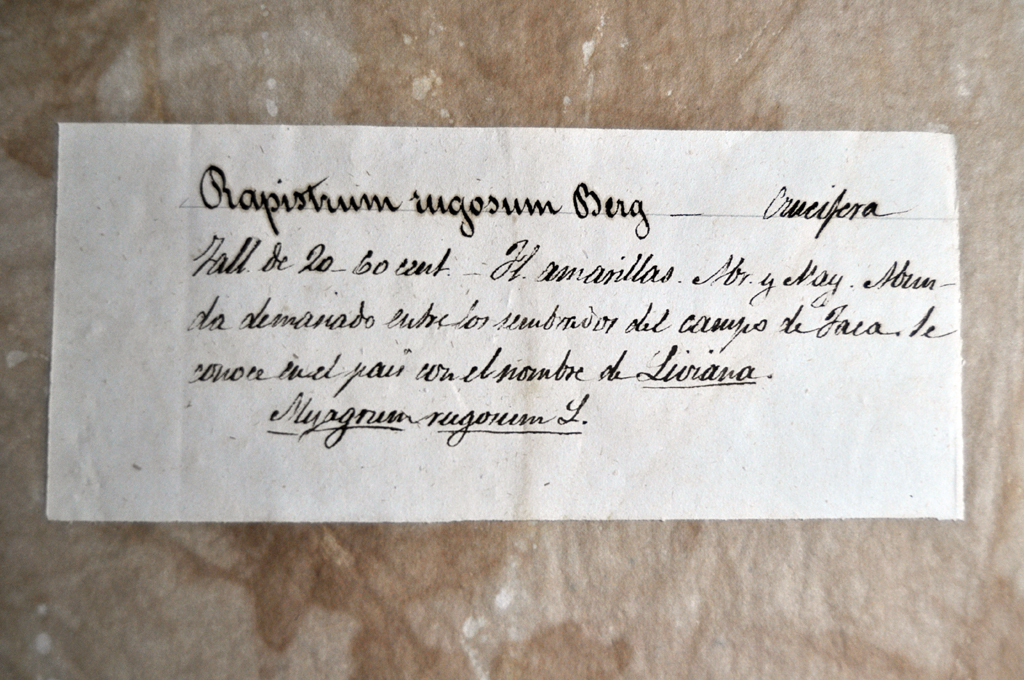 Rapistrum rugosum Berg — Crucifera
Tall. de 20-60 cent. - Fl. amarillas. Abr. y May. Abun-
da demasiado entre los sembrados del campo de Jaca. Se
conoce en el pais con el nombre de Liviana.
Myagrum rugosum L.